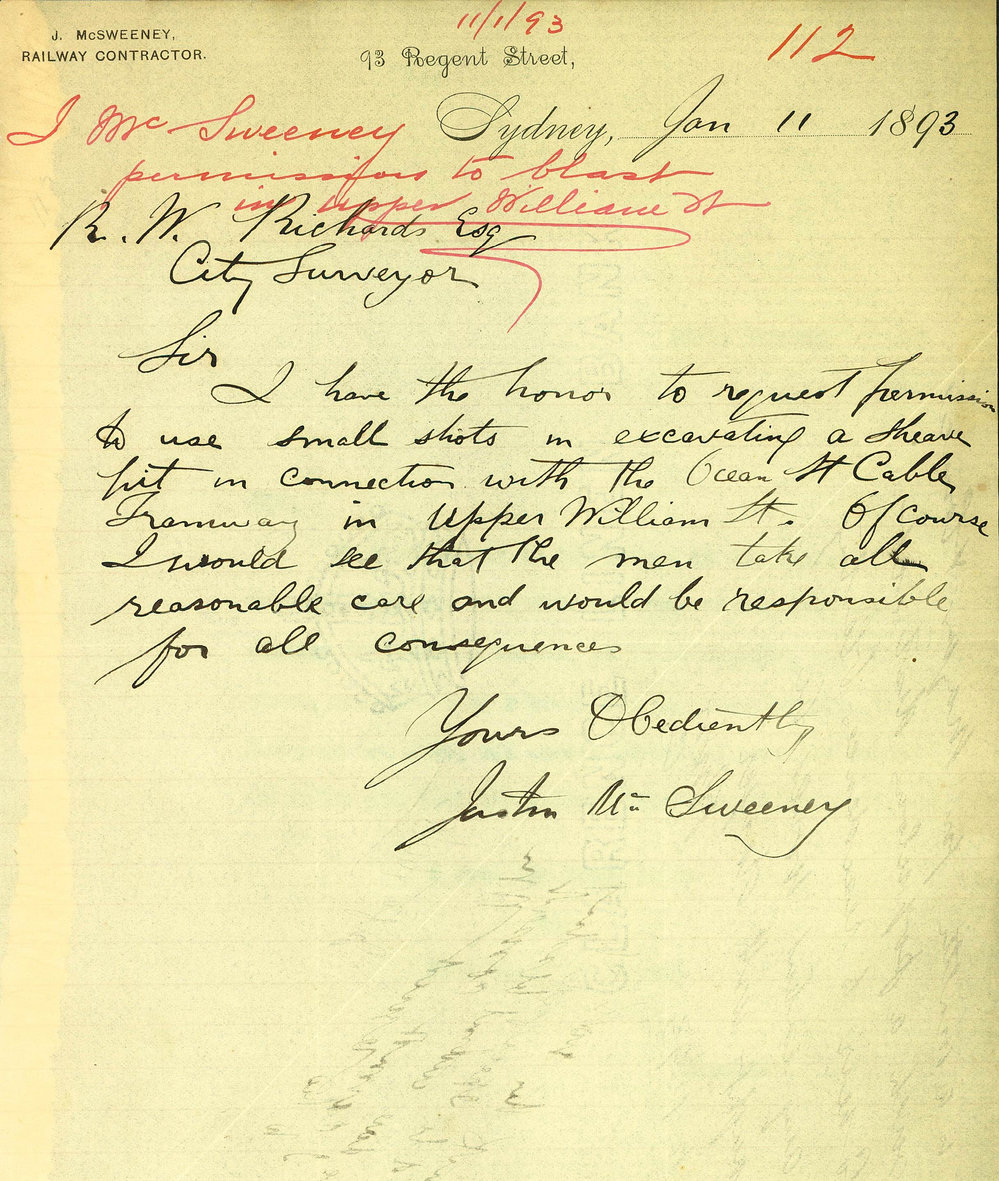 11/1/93
112
J. McSWEENEY,
RAILWAY CONTRACTOR.
93 Regent Street,
Sydney, Jan 11 1893
J Mc Sweeney
permission to blast
in upper William St
R. W. Richards Esq
City Surveyor
Sir
I have the honor to request permission
to use small shots in excavating a sheave
pit in connection with the Ocean St Cable
Tramway in Upper William St. Of course
I would see that the men take all
reasonable care and would be responsible
for all consequences
Yours Obediently
Justin Mc Sweeney